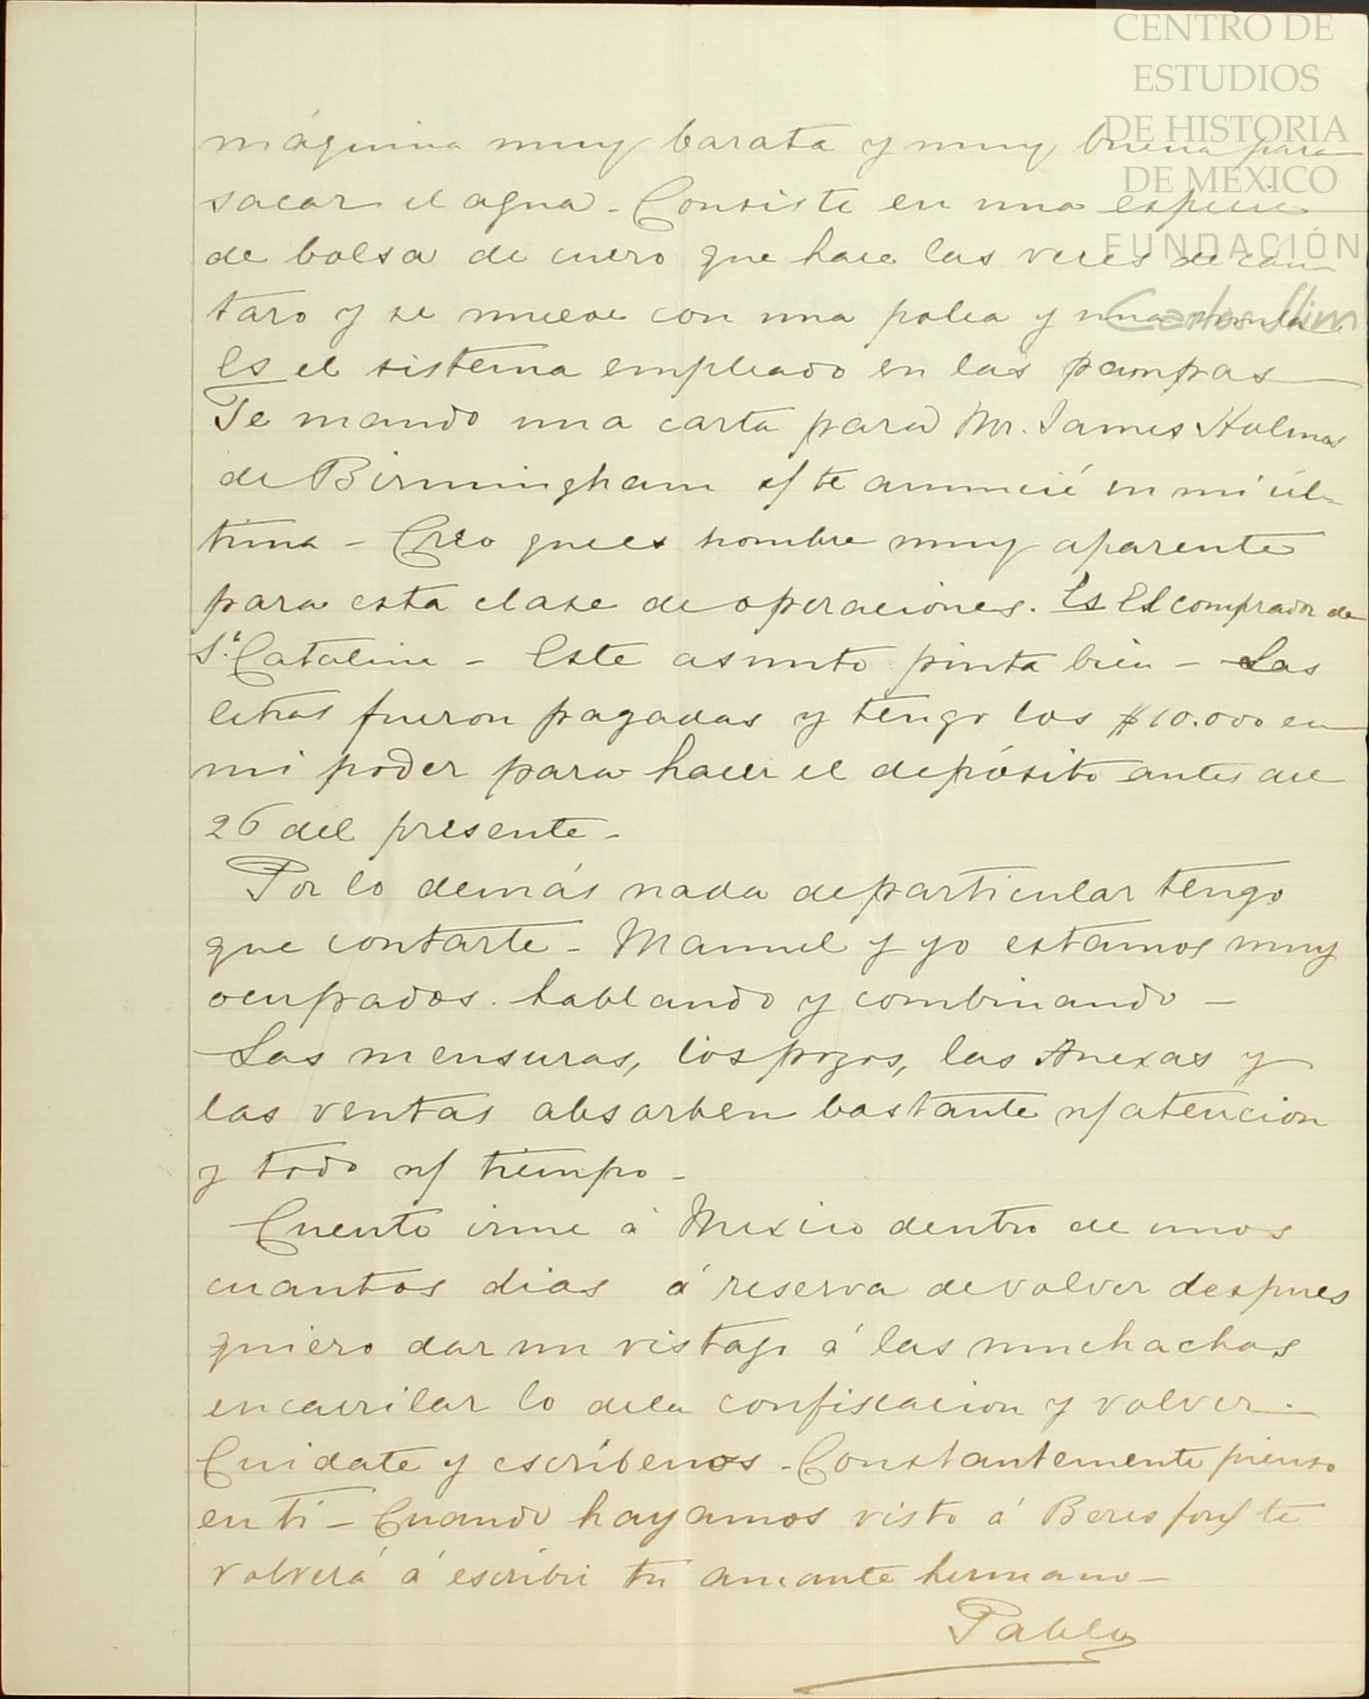 CENTRO DE
ESTUDIOS
DE HISTORIA
DE MÉXICO
FUNDACIÓN
Carlos Slim
máquina muy barata y muy buena para
sacar el agua - Consiste en una especie
de bolsa de cuero que hace las veces de cán-
taro y se mueve con una polea y una mula.
Es el sistema empleado en las pampas
Te mando una carta para Mr. James Holmes
de Birmingham q/ te anuncié en mi úl-
tima - Creo que es hombre muy aparente
para esta clase de operaciones. Es El comprador de
Sta Catalina - Este asunto pinta bien - Las
letras fueron pagadas y tengo los $10.000 en
mi poder para hacer el depósito antes del
26 del presente -
Por lo demás nada de particular tengo
que contarte - Manuel y yo estamos muy
ocupados. hablando y combinando -
Las mensuras, los pozos, las Anexas y
las ventas absorben bastante n/ atencion
y todo n/ tiempo -
Cuento irme á Mexico dentro de unos
cuantos dias á reserva de volver despues
quiero dar un vistazo á las muchachas
encarrilar lo de la confiscacion y volver -
Cuidate y escríbenos - Constantemente pienso
en ti - Cuando hayamos visto á Beresford te
volverá á escribir tu amante hermano -
Pablo